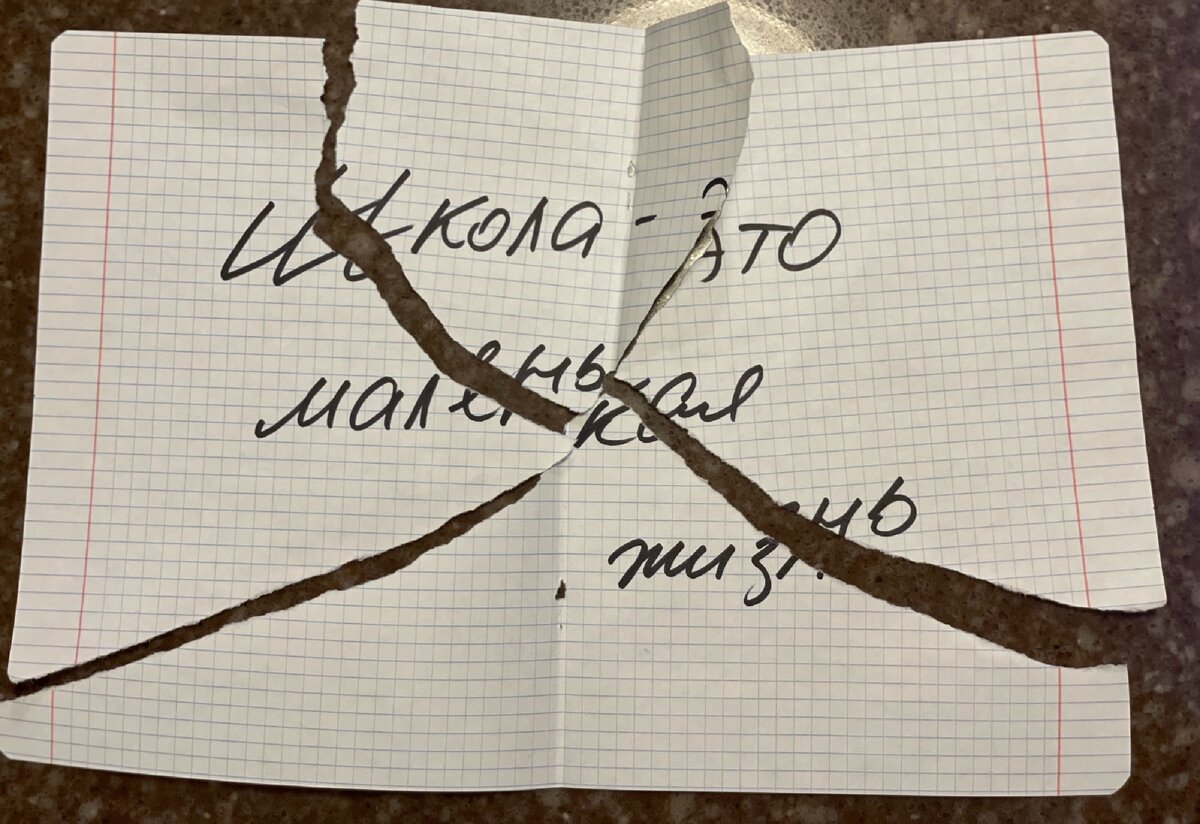 Школа - это
маленькая
жизнь